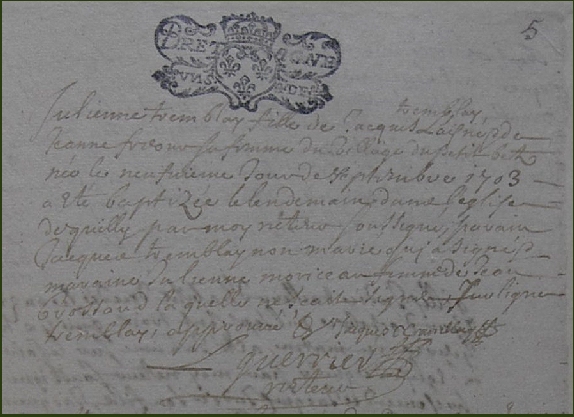 5
BRETAGNE
UN S. DE
tremblay
Julienne tremblay fille de Jacques laisné de
Jeanne sa femme du village du petit betz
née le neufuieme Jour de Septembre 1703
a esté baptizée le lendemain dans leglise
de quilly par moy recteur soussigné, parain
Jacques tremblay non marié qui a signé
maraine Julienne moriceau femme de Jean
laquelle ne scait signer ligne
tremblay approuvé Jacques Tremblay
Guerrier
recteur